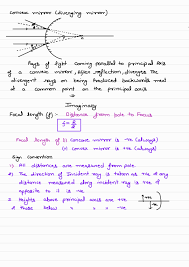 Convex mirror (diverging mirror)
Rays of light coming parallel to principal axis
of a convex mirror, after reflection, diverge. The
divergent rays on being produced backwards meet
at a common point on the principal axis
⇒ Imaginary
Focal length (f) = Distance from pole to Focus
Focal length of (i) concave mirror is -ve (always)
(ii) convex mirror is +ve (always)
Sign convention
1) All distances are measured from pole.
2) The direction of Incident ray is taken as +ve
distance measured along incident ray is +ve if
opposite to it is -ve
Heights above principal axis are +ve
below
-ve